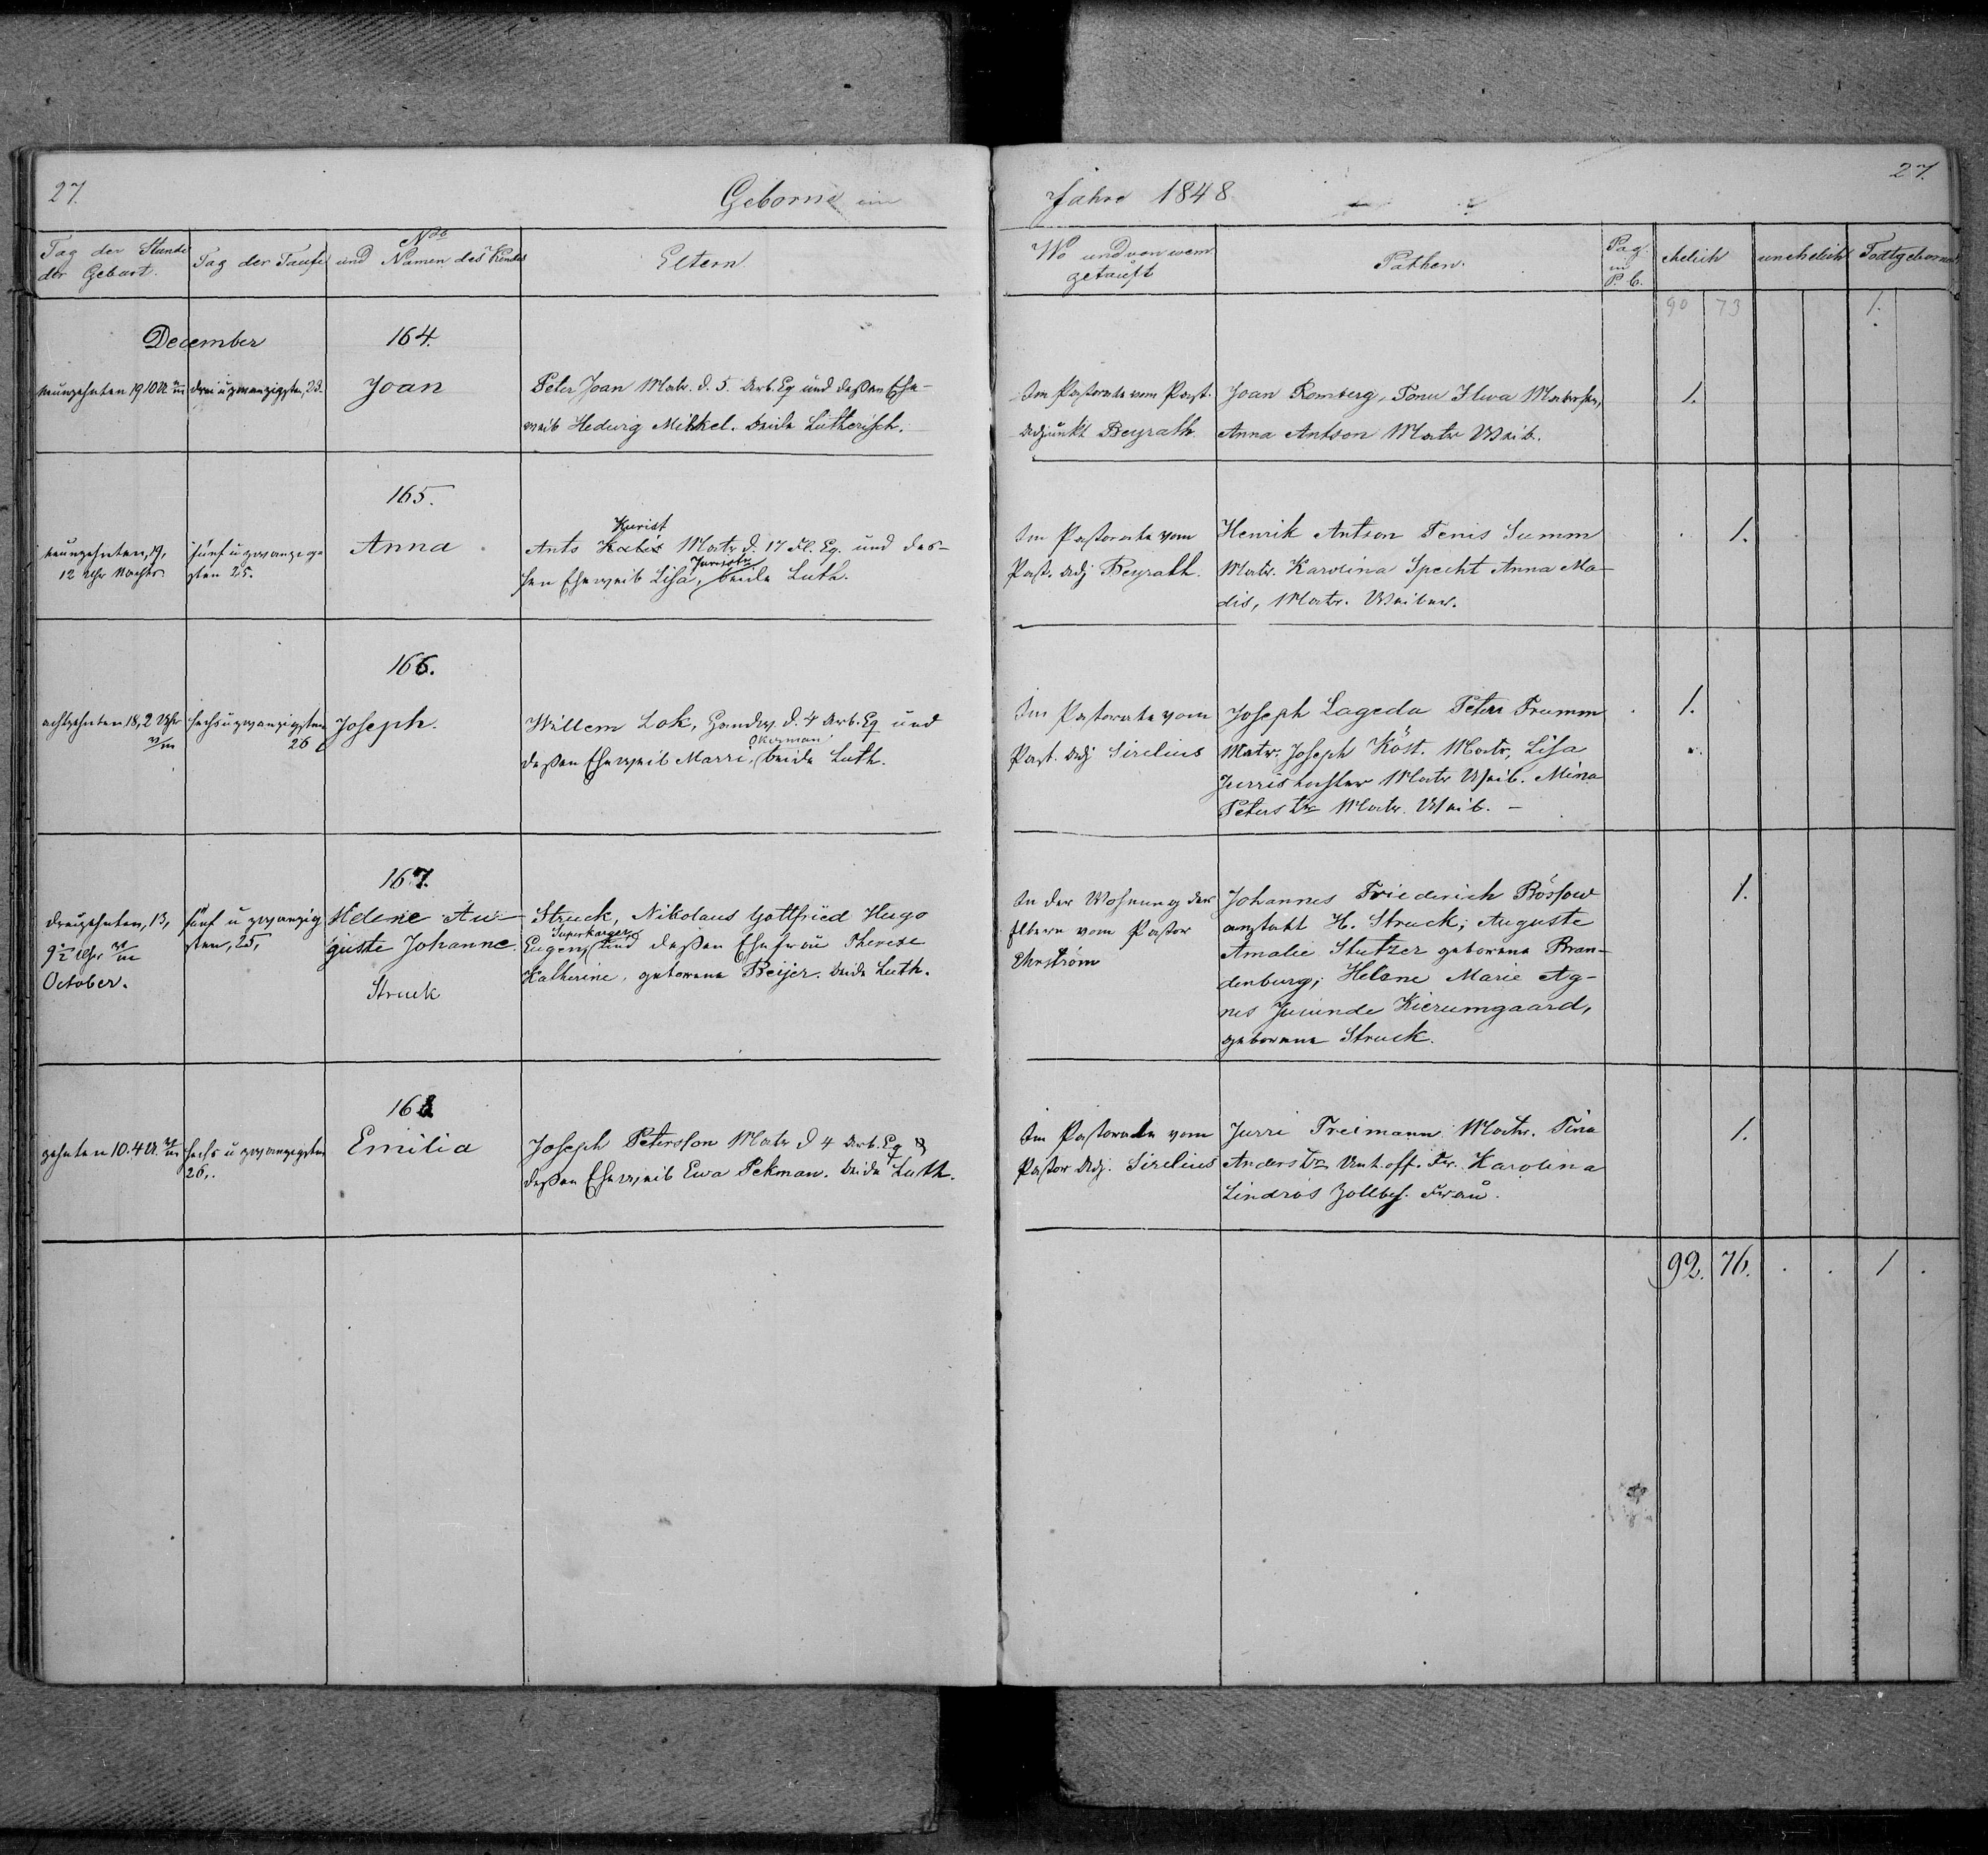 27.
Geborne im
Tag der Stunde
der Geburt.
Tag der Taufe
No
und Namen des Kindes
Eltern
December
164.
neunzehnten 19 10 U
drei u zwanzigsten, 23.
Joan
Peter Joan Matr. d. 5. Arb. Eq und deßen Ehe-
weib Hedwig Mihkel. beide Lutherisch.
165.
neunzehnten, 19,
12 Uhr Nachts
fünf u zwanzig
sten 25.
Anna
Kurist
Ants Matr d. 17 Fl. Eq. und des-
sen Eheweib Lisa, beide Luth.
166.
achtzehnten 18, 2 Uhr
sechs u zwanzigsten
26
Joseph.
Willem Lok, Handw. d. 4 Arb. Eq und
Okerman
deßen Eheweib Marri, beide Luth.
167.
dreizehnten, 13,
9½ Uhr
October.
fünf u zwanzig
sten, 25,
Helene Au-
guste Johanne
Struck
Struck, Nikolaus Gottfried Hugo
Superkarger
Eugen, und deßen Ehefrau Therese
Katherine, geborene Beijer. beide Luth.
168
zehnten 10. 4 U.
sechs u zwanzigsten
26.
Emilia
Joseph Petersson Matr d 4 Arb. Eq &
deßen Eheweib Ewa Pekman. beide Luth.
27.
Jahre 1848
Wo und von wem
getauft
Pathen.
Pag.
in
P. b.
ehelich
unehelich
Todtgeborne
90 73 1.
Im Pastorate vom Past.
Adjunkt Beyrath
Joan Romberg, Tonu Ilwa Matrosen,
Anna Antson Matr Weib.
1.
Im Pastorate vom
Past. Adj Beyrath.
Henrik Antson Tenis Summ
Matr. Karolina Specht Anna Ma-
dis, Matr. Weiber.
1.
Im Pastorate vom
Past. Adj Sirelius
Joseph Lageda Peter Trumm
Matr. Joseph Köst. Matr, Lisa
Jurristochter Matr Weib. Mina
Peters tr Matr. Weib. –
1.
In der Wohnung der
Eltern vom Pastor
Ehrström
Johannes Friederich Bössow
anstatt H. Struck; Auguste
Amalie Stutzer geborene Bran-
denburg; Helene Marie Ag-
nes Jucunde Kierumgaard,
geborene Struck.
1.
Im Pastorate vom
Pastor Adj. Sirelius
Jurri Treimann Matr. Tina
Anders tr Unt. off. Fr. Karolina
Lindros Zollbes. Frau.
1.
92. 76. . . 1 .